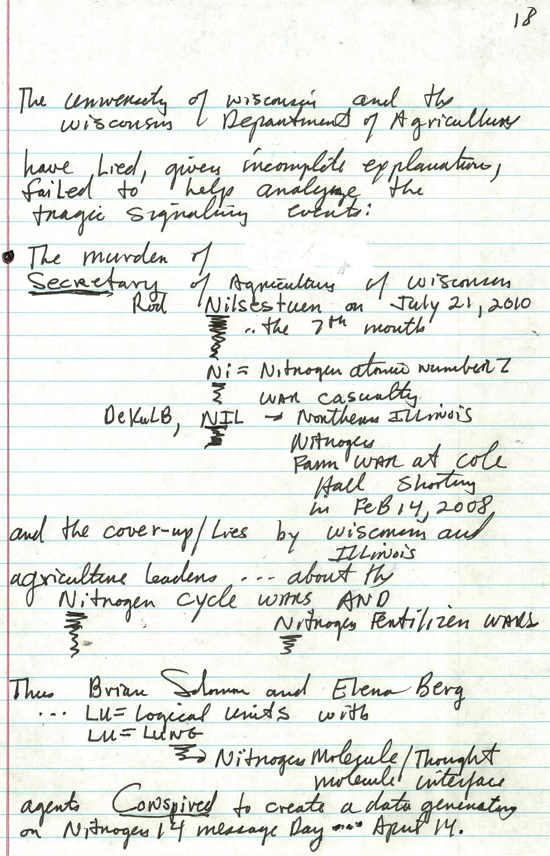 18
The University of Wisconsin and the
Wisconsin Department of Agriculture
have Lied, given incomplete explanations,
failed to help analyze the
tragic signaling events:
The murder of
Secretary of Agriculture of Wisconsin
Rod Nilsestuen on July 21, 2010
.. the 7th month
Ni = Nitrogen atomic number 7
WAR casualty
DeKULB, NIL → Northern ILLinois
Nitrogen
Farm WAR at Cole
Hall Shooting
in FeB 14, 2008,
and the cover-up/Lies by Wisconsin and
ILLinois
agriculture leaders ... about the
Nitrogen Cycle WARS AND
Nitrogen Fertilizer WARS
Thus Brian Solomon and Elena Berg
... LU = Logical Units with
LU = LUNG
→ Nitrogen Molecule/Thought
molecule interface
agents Conspired to create a data generating
on Nitrogen 14 message Day .... April 14.